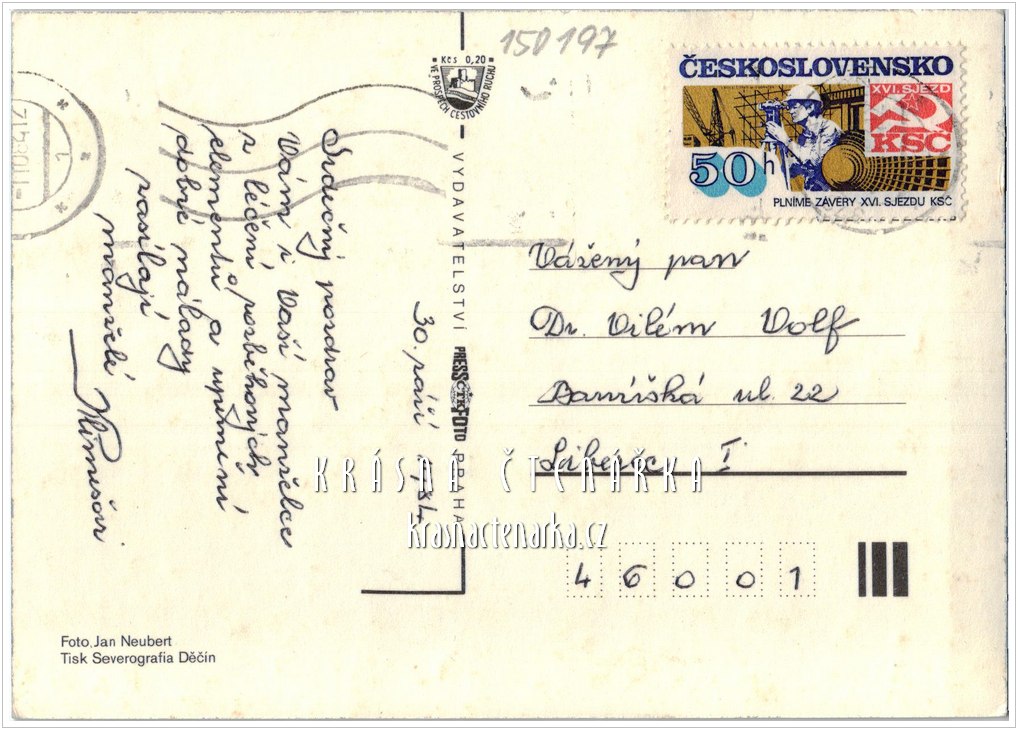 150197
Kčs 0,20
VE PROSPĚCH CESTOVNÍHO RUCHU
ČESKOSLOVENSKO
XVI. SJEZD
KSČ
50 h
PLNÍME ZÁVĚRY XVI. SJEZDU KSČ
Srdečný pozdrav
Vám i Vaší manželce
z léčení
elementů a upřímní
dobré nálady
zasílají
manželé
30. září 84
VYDAVATELSTVÍ PRESSFOTO PRAHA
ČTK
Vážený pan
Dr. Vilém Volf
ul. 22
Liberec I.
KRÁSNÁ ČTENÁŘKA
krasnactenarka.cz
46001
Foto Jan Neubert
Tisk Severografia Děčín